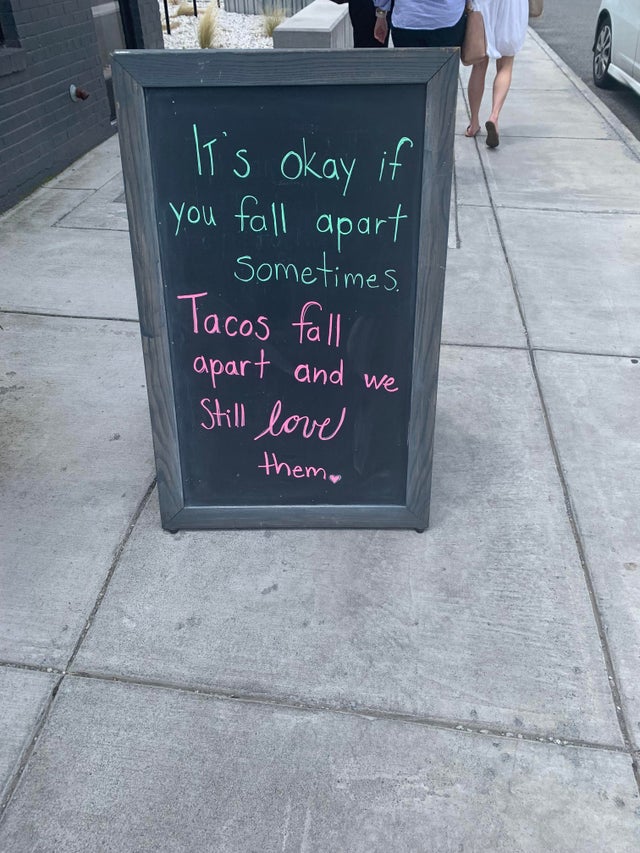 It's okay if
you fall apart
sometimes.
Tacos fall
apart and we
Still love
them.